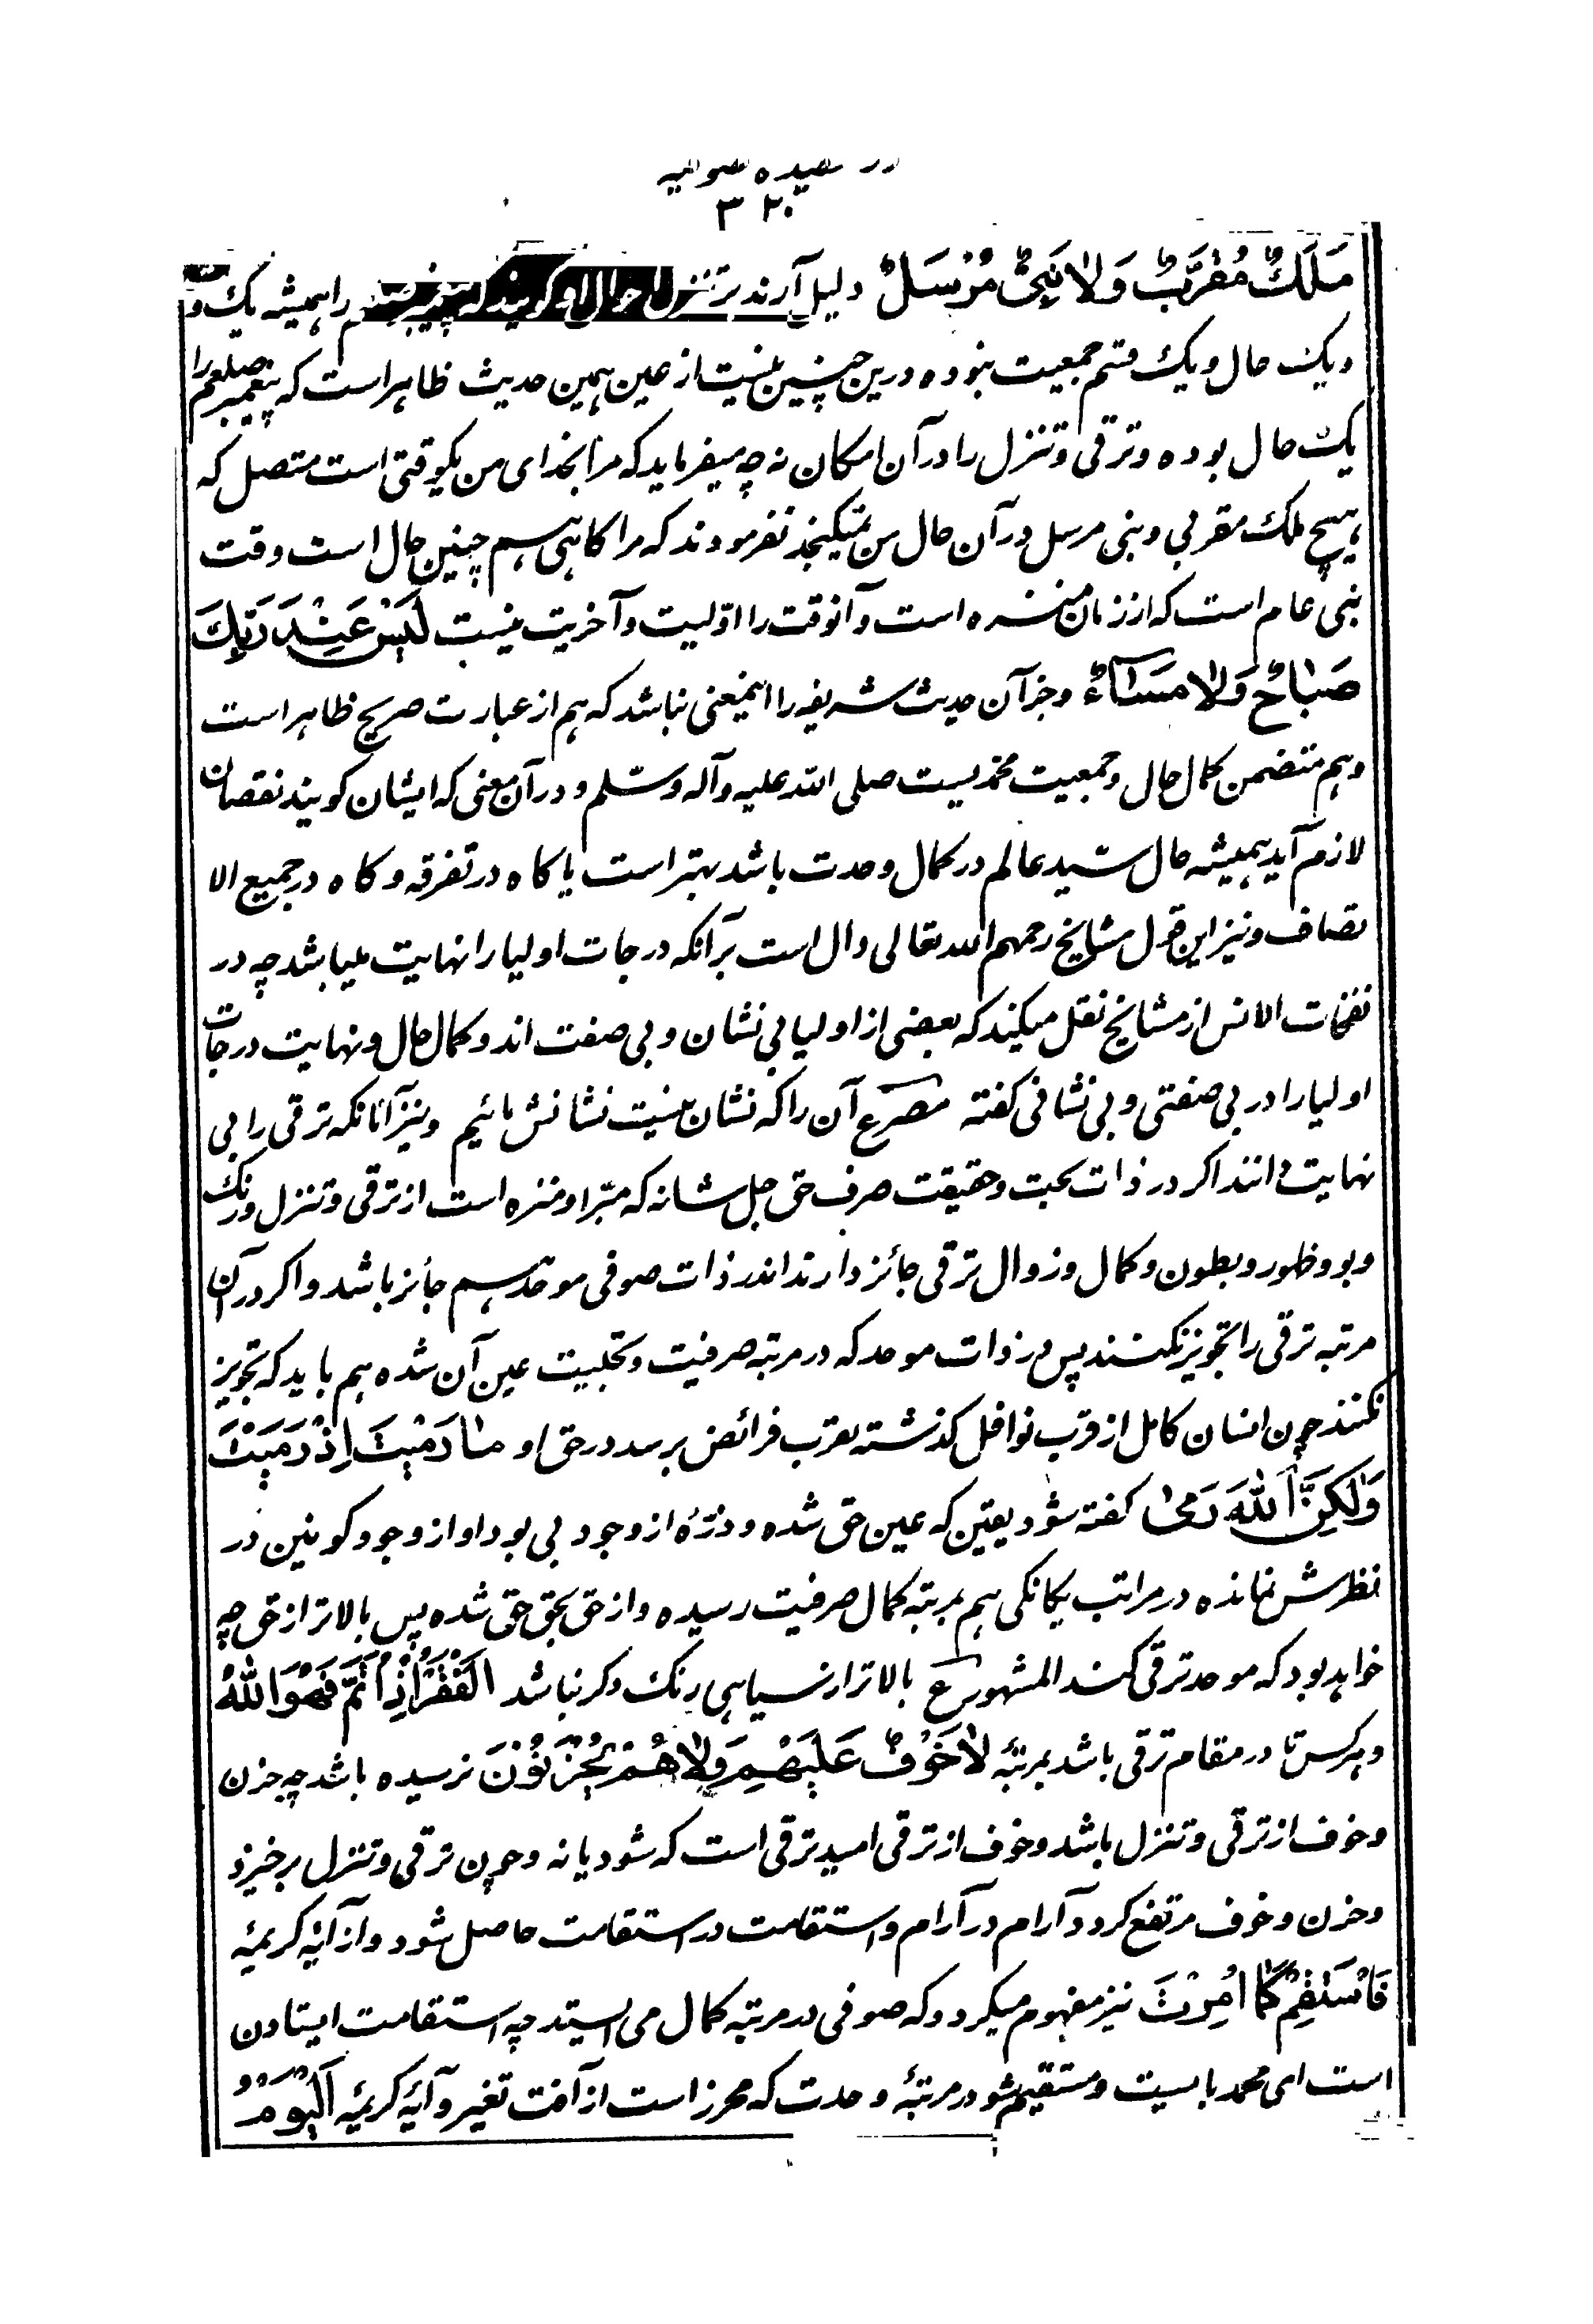 در عقیده صوفیه
۳۲۰
مَلَكٌ مُقَرَّبٌ وَلَا نَبِيٌّ مُرْسَلٌ دلیل آرند بر تنزل احوال و گویند که پیغمبر را همیشه یک وقت
و یک حال و یک قسم جمعیت نبوده درین حین چنین نیست از عین همین حدیث ظاهر است که پیغمبر صلعم را
یک حال بوده و ترقی و تنزل را در آن امکان نه چه میفرماید که مرا بخدای من یکوقتی است متصل که
هیچ ملک مقربی و نبی مرسل در آن حال من نمیگنجد نفرمودند که مرا گاهی هم چنین حال است وقت
نبی عام است که از زمان منزه است و آنوقت را اوّلیت و آخریت نیست لَيْسَ عِنْدَ رَبِّكَ
صَبَاحٌ وَلَا مَسَاءٌ و جز آن حدیث شریفه را اینمعنی نباشد که هم از عبارت صریح ظاهر است
و هم متضمن کمال حال و جمعیت محمدیست صلی الله علیه و آله وسلم و در آن معنی که ایشان گویند نقصان
لازم آید همیشه حال سید عالم در کمال وحدت باشد بهتر است یا گاه در تفرقه و گاه در جمیع الا
تصاف و نیز این قول مشایخ رحمهم الله تعالی دال است برآنکه درجات اولیا را نهایت میباشد چه در
نفحات الانس از مشایخ نقل میکند که بعضی از اولیا بی نشان و بی صفت اند و کمال حال و نهایت درجات
اولیا را در بی صفتی و بی نشانی گفته مصرع آن را که نشان نیست نشانش مائیم و نیز آنانکه ترقی را بی
نهایت دانند اگر در ذات بحت و حقیقت صرف حق جل شانه که مبّرا و منزه است از ترقی و تنزل و رنگ
و بو و ظهور و بطون و کمال و زوال ترقی جائز دارند اندر ذات صوفی موحد هم جائز باشد و اگر در آن
مرتبه ترقی را تجویز نکنند پس در ذات موحد که در مرتبه صرفیت و بحتیت عین آن شده هم باید که تجویز
نکنند چون انسان کامل از قرب نوافل گذشته بقرب فرائض برسد در حق او مَا رَمَيْتَ اِذْ رَمَيْتَ
وَلٰكِنَّ اللهَ رَمٰى گفته شود یقین که عین حق شده و ذرّهٔ از وجود بی بود او از وجود کونین در
نظرش نمانده در مراتب یگانگی هم بمرتبه کمال صرفیت رسیده و از حق بحق حق شده پس بالاتر از حق چه
خواهد بود که موحد ترقی کند المشهور ع بالاتر از سیاهی رنگ دگر نباشد اَلْفَقْرُ اِذَا تَمَّ فَهُوَ اللهُ
و هرکس تا در مقام ترقی باشد بمرتبهٔ لَا خَوْفٌ عَلَيْهِمْ وَلَا هُمْ يَحْزَنُوْنَ نرسیده باشد چه حزن
و خوف از ترقی و تنزل باشد و خوف از ترقی امید ترقی است که شود یا نه و چون ترقی و تنزل برخیزد
و حزن و خوف مرتفع گردد و آرام در آرام و استقامت در استقامت حاصل شود و از آیهٔ کریمهٔ
فَاسْتَقِمْ كَمَا اُمِرْتَ نیز مفهوم میگردد که صوفی در مرتبه کمال می ایستد چه استقامت ایستادن
است ای محمد بایست و مستقیم شو در مرتبهٔ وحدت که محرز است از آفت تغیر و آیهٔ کریمهٔ اَلْيَوْمَ